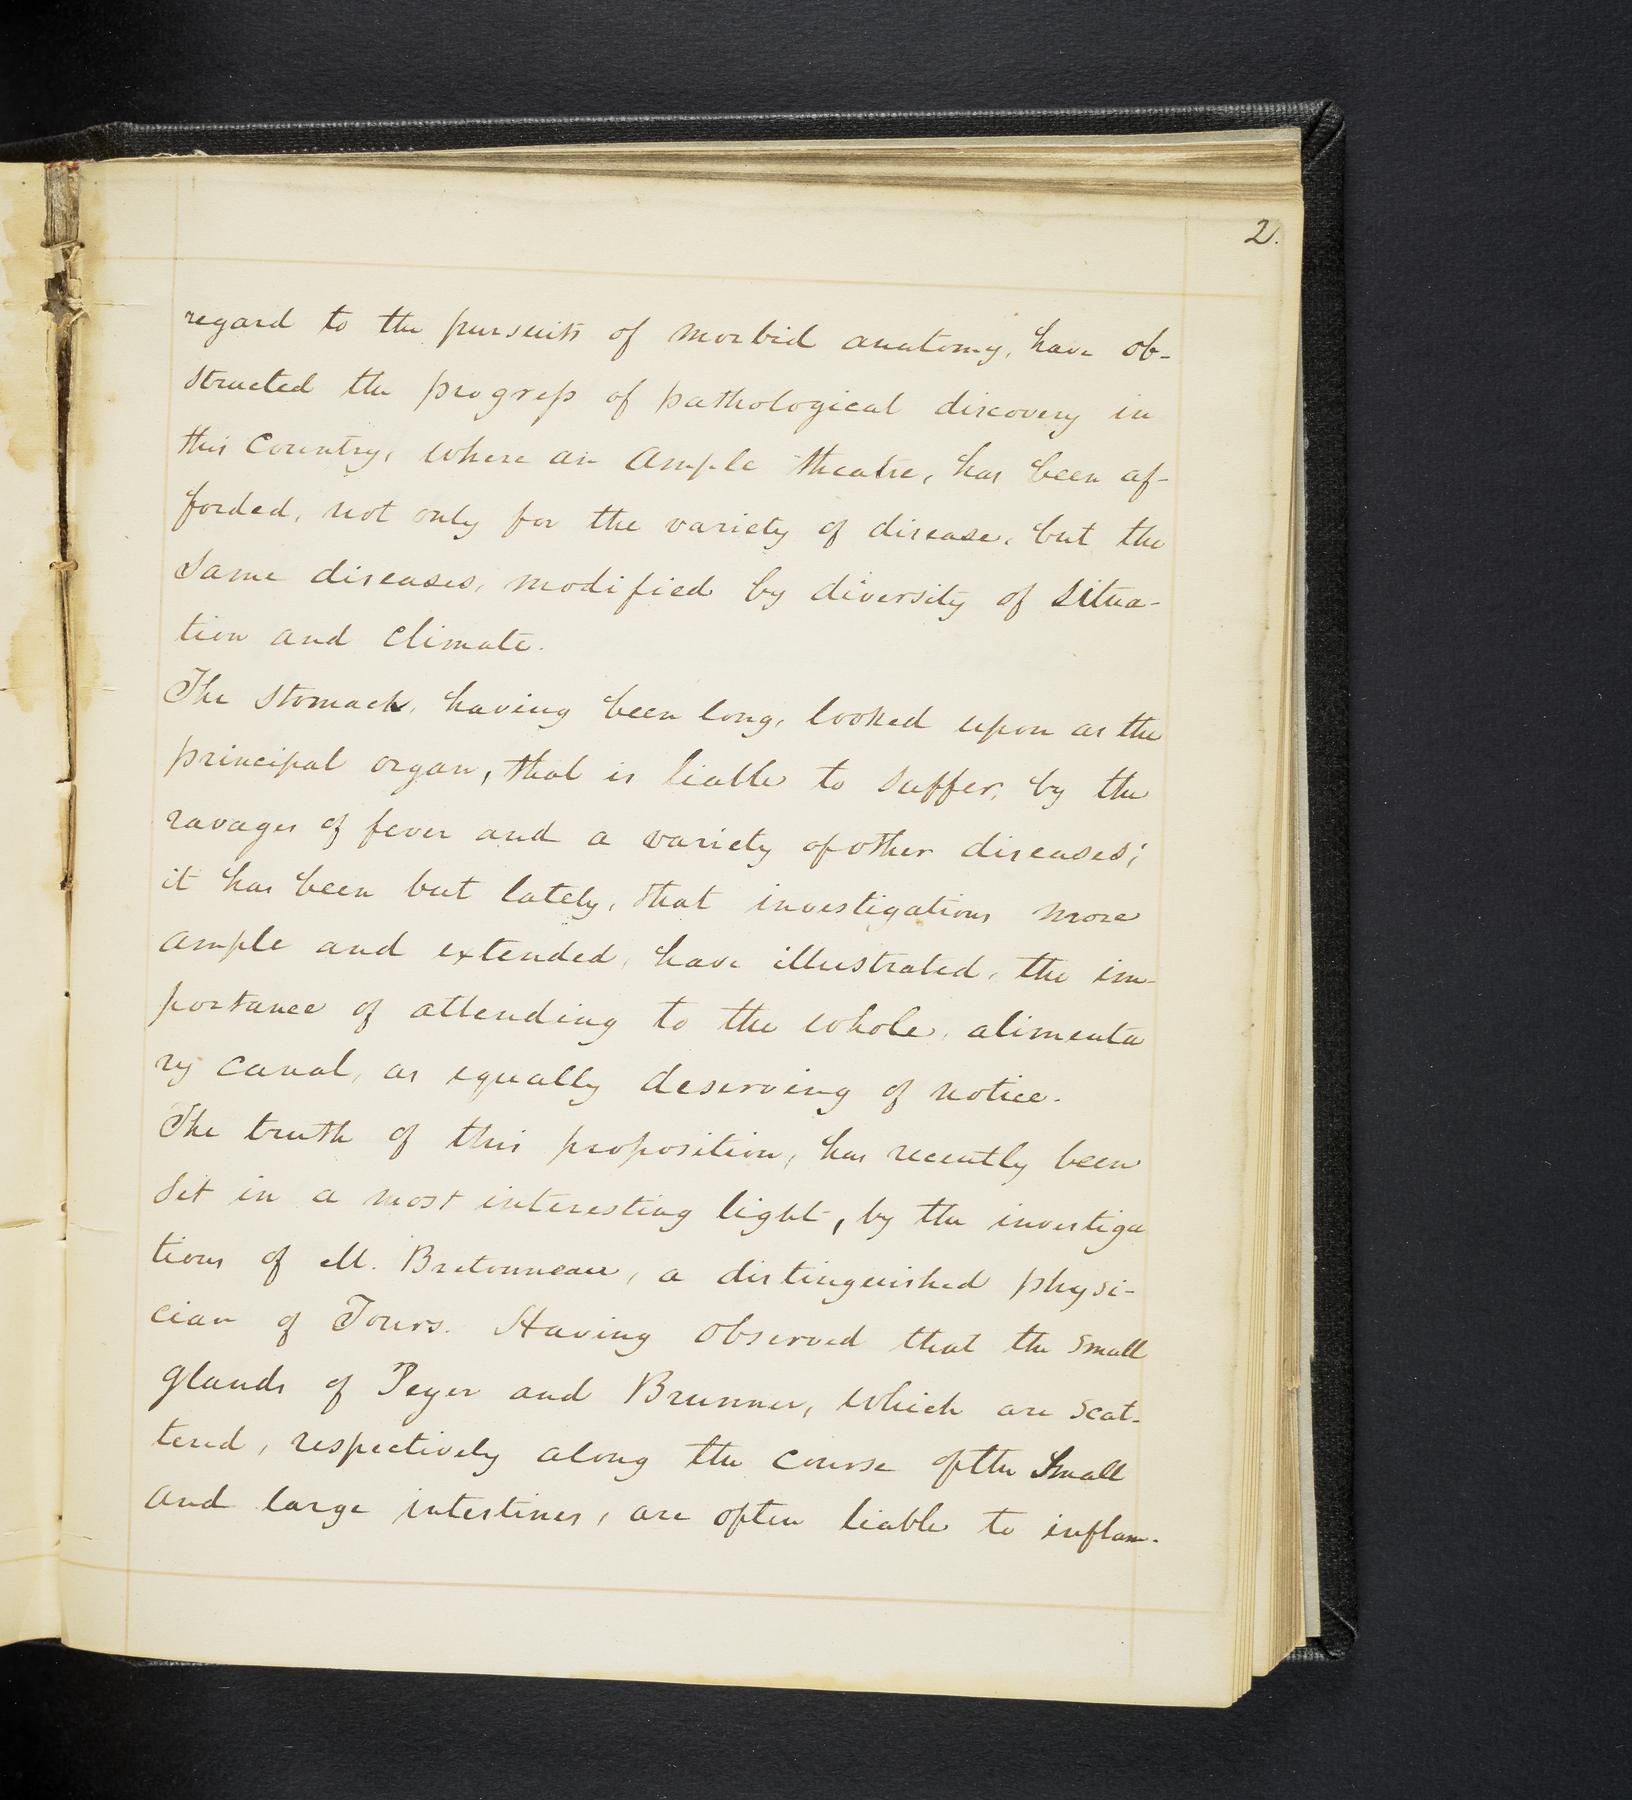 2.
regard to the pursuits of morbid anatomy, have ob-
structed the progress of pathological discovery in
this Country, where an ample theatre, has been af-
forded, not only for the variety of disease, but the
same diseases, modified by diversity of situa-
tion and climate.
The stomach, having been long, looked upon as the
principal organ, that is liable to suffer, by the
ravages of fever and a variety of other diseases;
it has been but lately, that investigations more
ample and extended, have illustrated, the im-
portance of attending to the whole, alimenta
ry canal, as equally deserving of notice.
The truth of this proposition, has recently been
set in a most interesting light, by the investiga
tions of M. Bretonneau, a distinguished physi-
cian of Tours. Having observed that the small
glands of Peyer and Brunner, which are scat-
tered, respectively along the course of the small
and large intestines, are often liable to inflam-